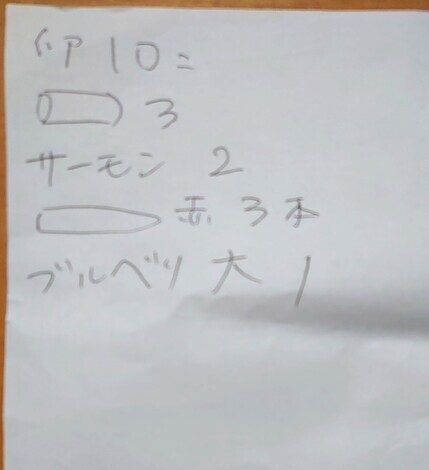 10コ
3
サーモン 2
赤 3本
ブルベリ 大 1